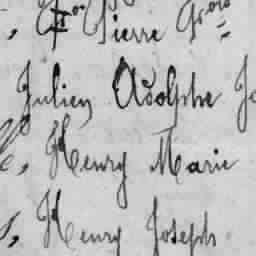 Pierre
Julien Adolphe
Henry Marie
Henry Joseph